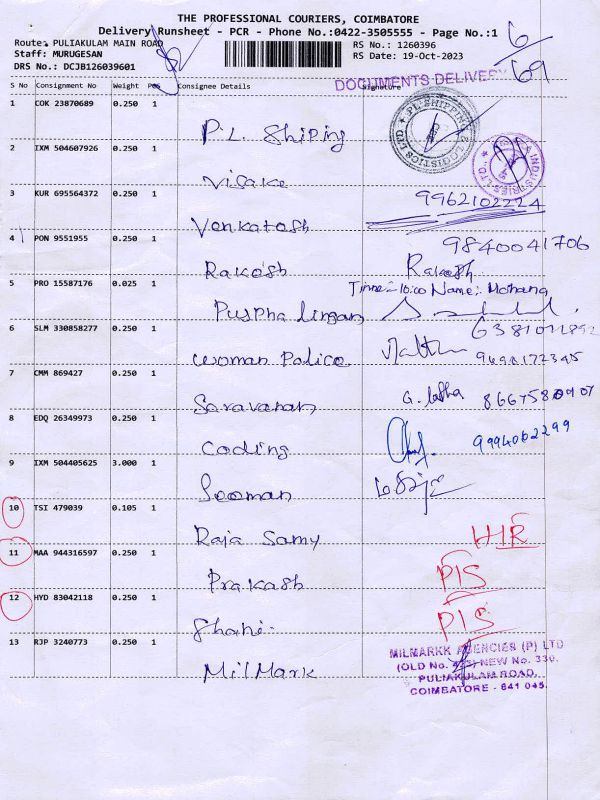 THE PROFESSIONAL COURIERS, COIMBATORE
Delivery Runsheet - PCR - Phone No.:0422-3505555 - Page No.:1
Route: PULIAKULAM MAIN ROAD
Staff: MURUGESAN
DRS No.: DCJB126039601
RS No.: 1260396
RS Date: 19-Oct-2023
6/69
DOCUMENTS DELIVERY
S No Consignment No Weight Pcs Consignee Details Signature
1 COK 23870689 0.250 1 P.L. Shiping
PL SHIPPING & LOGISTICS LTD
2 IXM 504607926 0.250 1 Visake
INDUSTRIES LTD
3 KUR 695564372 0.250 1 Venkatesh 9962102224
4 PON 9551955 0.250 1 Rakesh Rakesh 9840041706
5 PRO 15587176 0.025 1 Puspha lingam Time:-10:00 Name:- Mohana
6 SLM 330858277 0.250 1 Woman Police
7 CMM 869427 0.250 1 Saravanan G. latha
8 EDQ 26349973 0.250 1 Coding 9994062299
9 IXM 504405625 3.000 1 Seeman
10 TSI 479039 0.105 1 Raja Samy
11 MAA 944316597 0.250 1 Prakash PIS
12 HYD 83042118 0.250 1 Shani PIS
13 RJP 3240773 0.250 1 MilMark
MILMARKK AGENCIES (P) LTD
(OLD No. NEW No. 330,
PULIAKULAM ROAD,
COIMBATORE - 641 045.